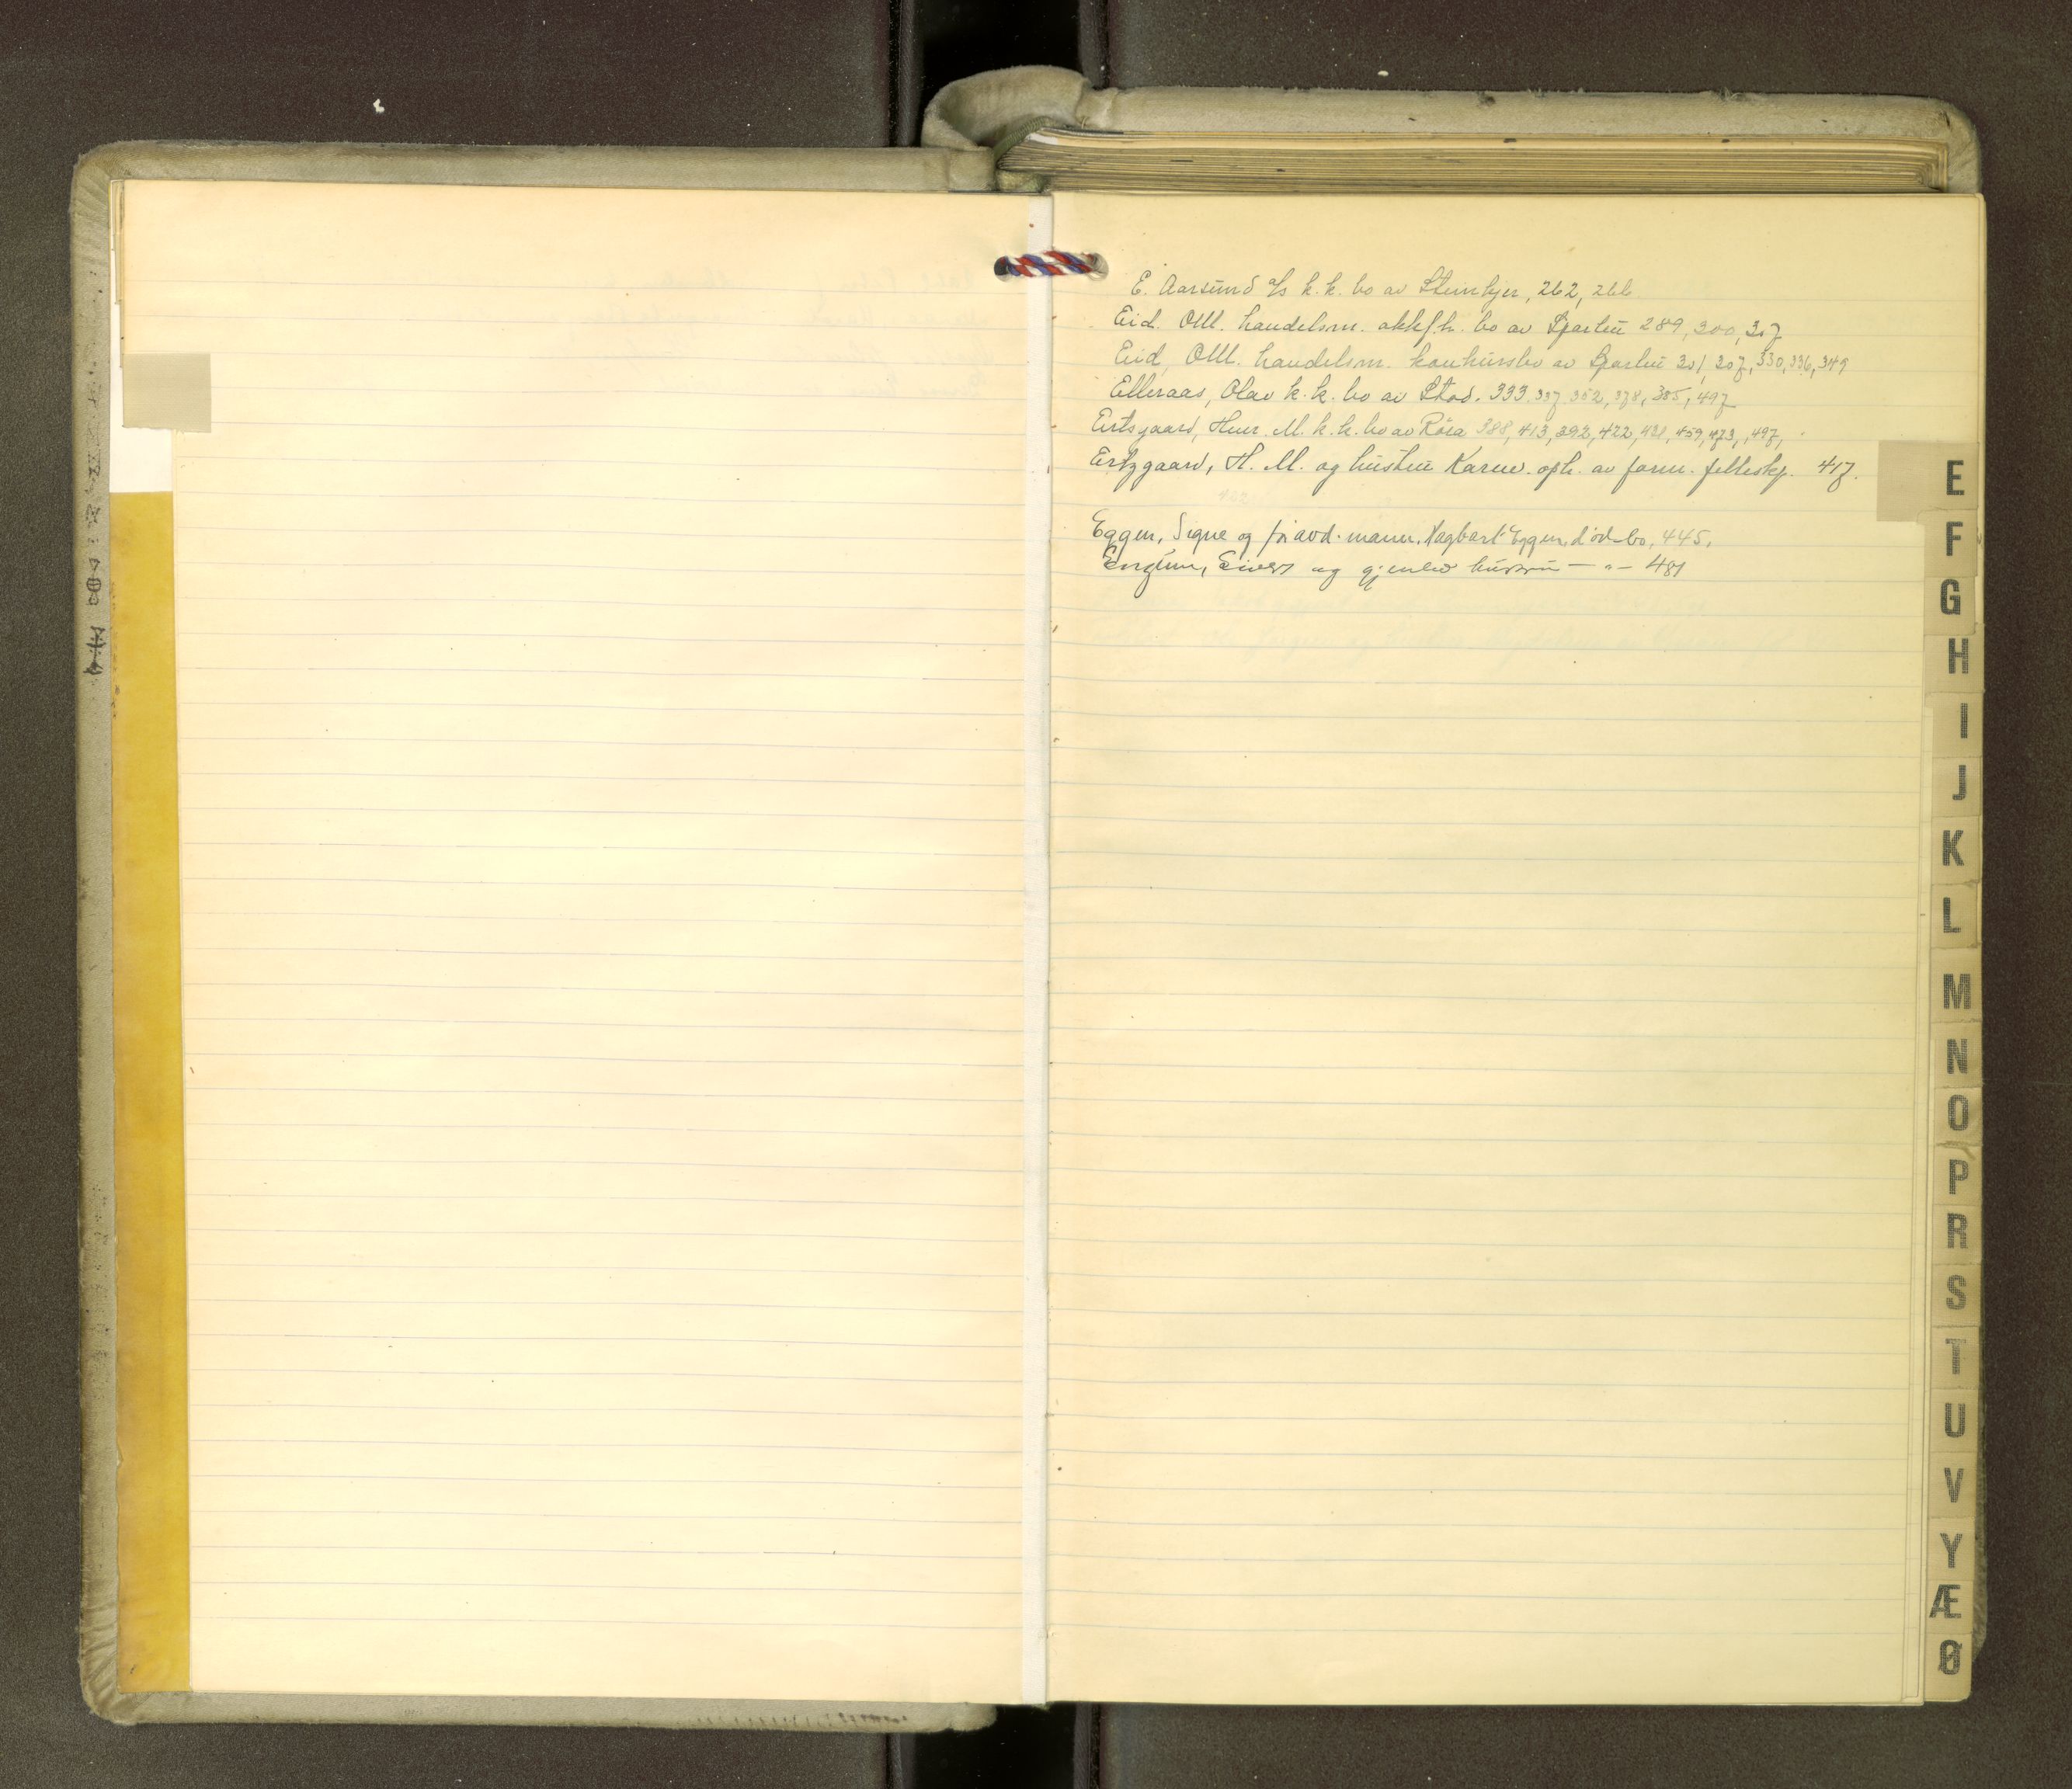 E. Aarsund a/s k. k. bo av Steinkjer, 262, 266
Eid. O.M. handelsm. akkf.h. bo av Sparbu 289, 300, 307
Eid, O.M. handelsm. konkursbo av Sparbu 301, 307, 330, 336, 349
Elleraas, Olav k. k. bo av Stod. 333, 337, 352, 378, 385, 497
Ertsgaard, H. M. k. k. bo av Röra 388, 413, 392, 422, 431, 459, 473, 497,
Ertzgaard, H. M. og hustru Karen. oph. av form. fellesskp. 417.
Eggen, Signe og før avd. mann, Dagbart Eggen, dödsbo, 445.
Englum, Sivert og gjenlev hustru — " — 481
E
F
G
H
I
J
K
L
M
N
O
P
R
S
T
U
V
Y
Æ
Ø